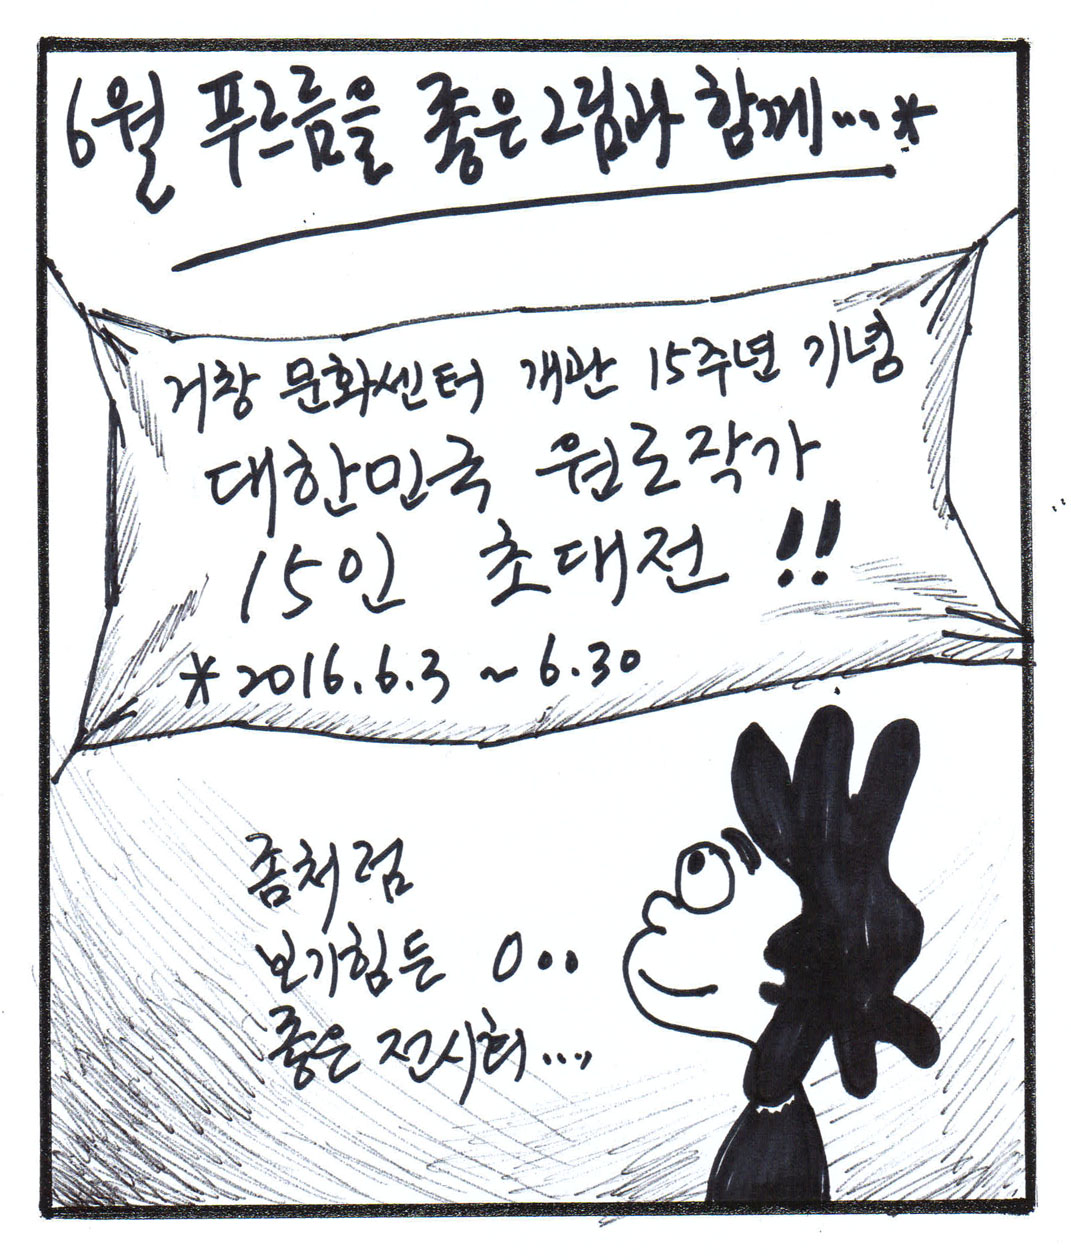 6월 푸르름을 좋은그림과 함께...*
거창 문화센터 개관 15주년 기념
대한민국 원로작가
15인 초대전 !!
*2016.6.3 ~ 6.30
좀처럼
보기힘든 o..
좋은 전시회....